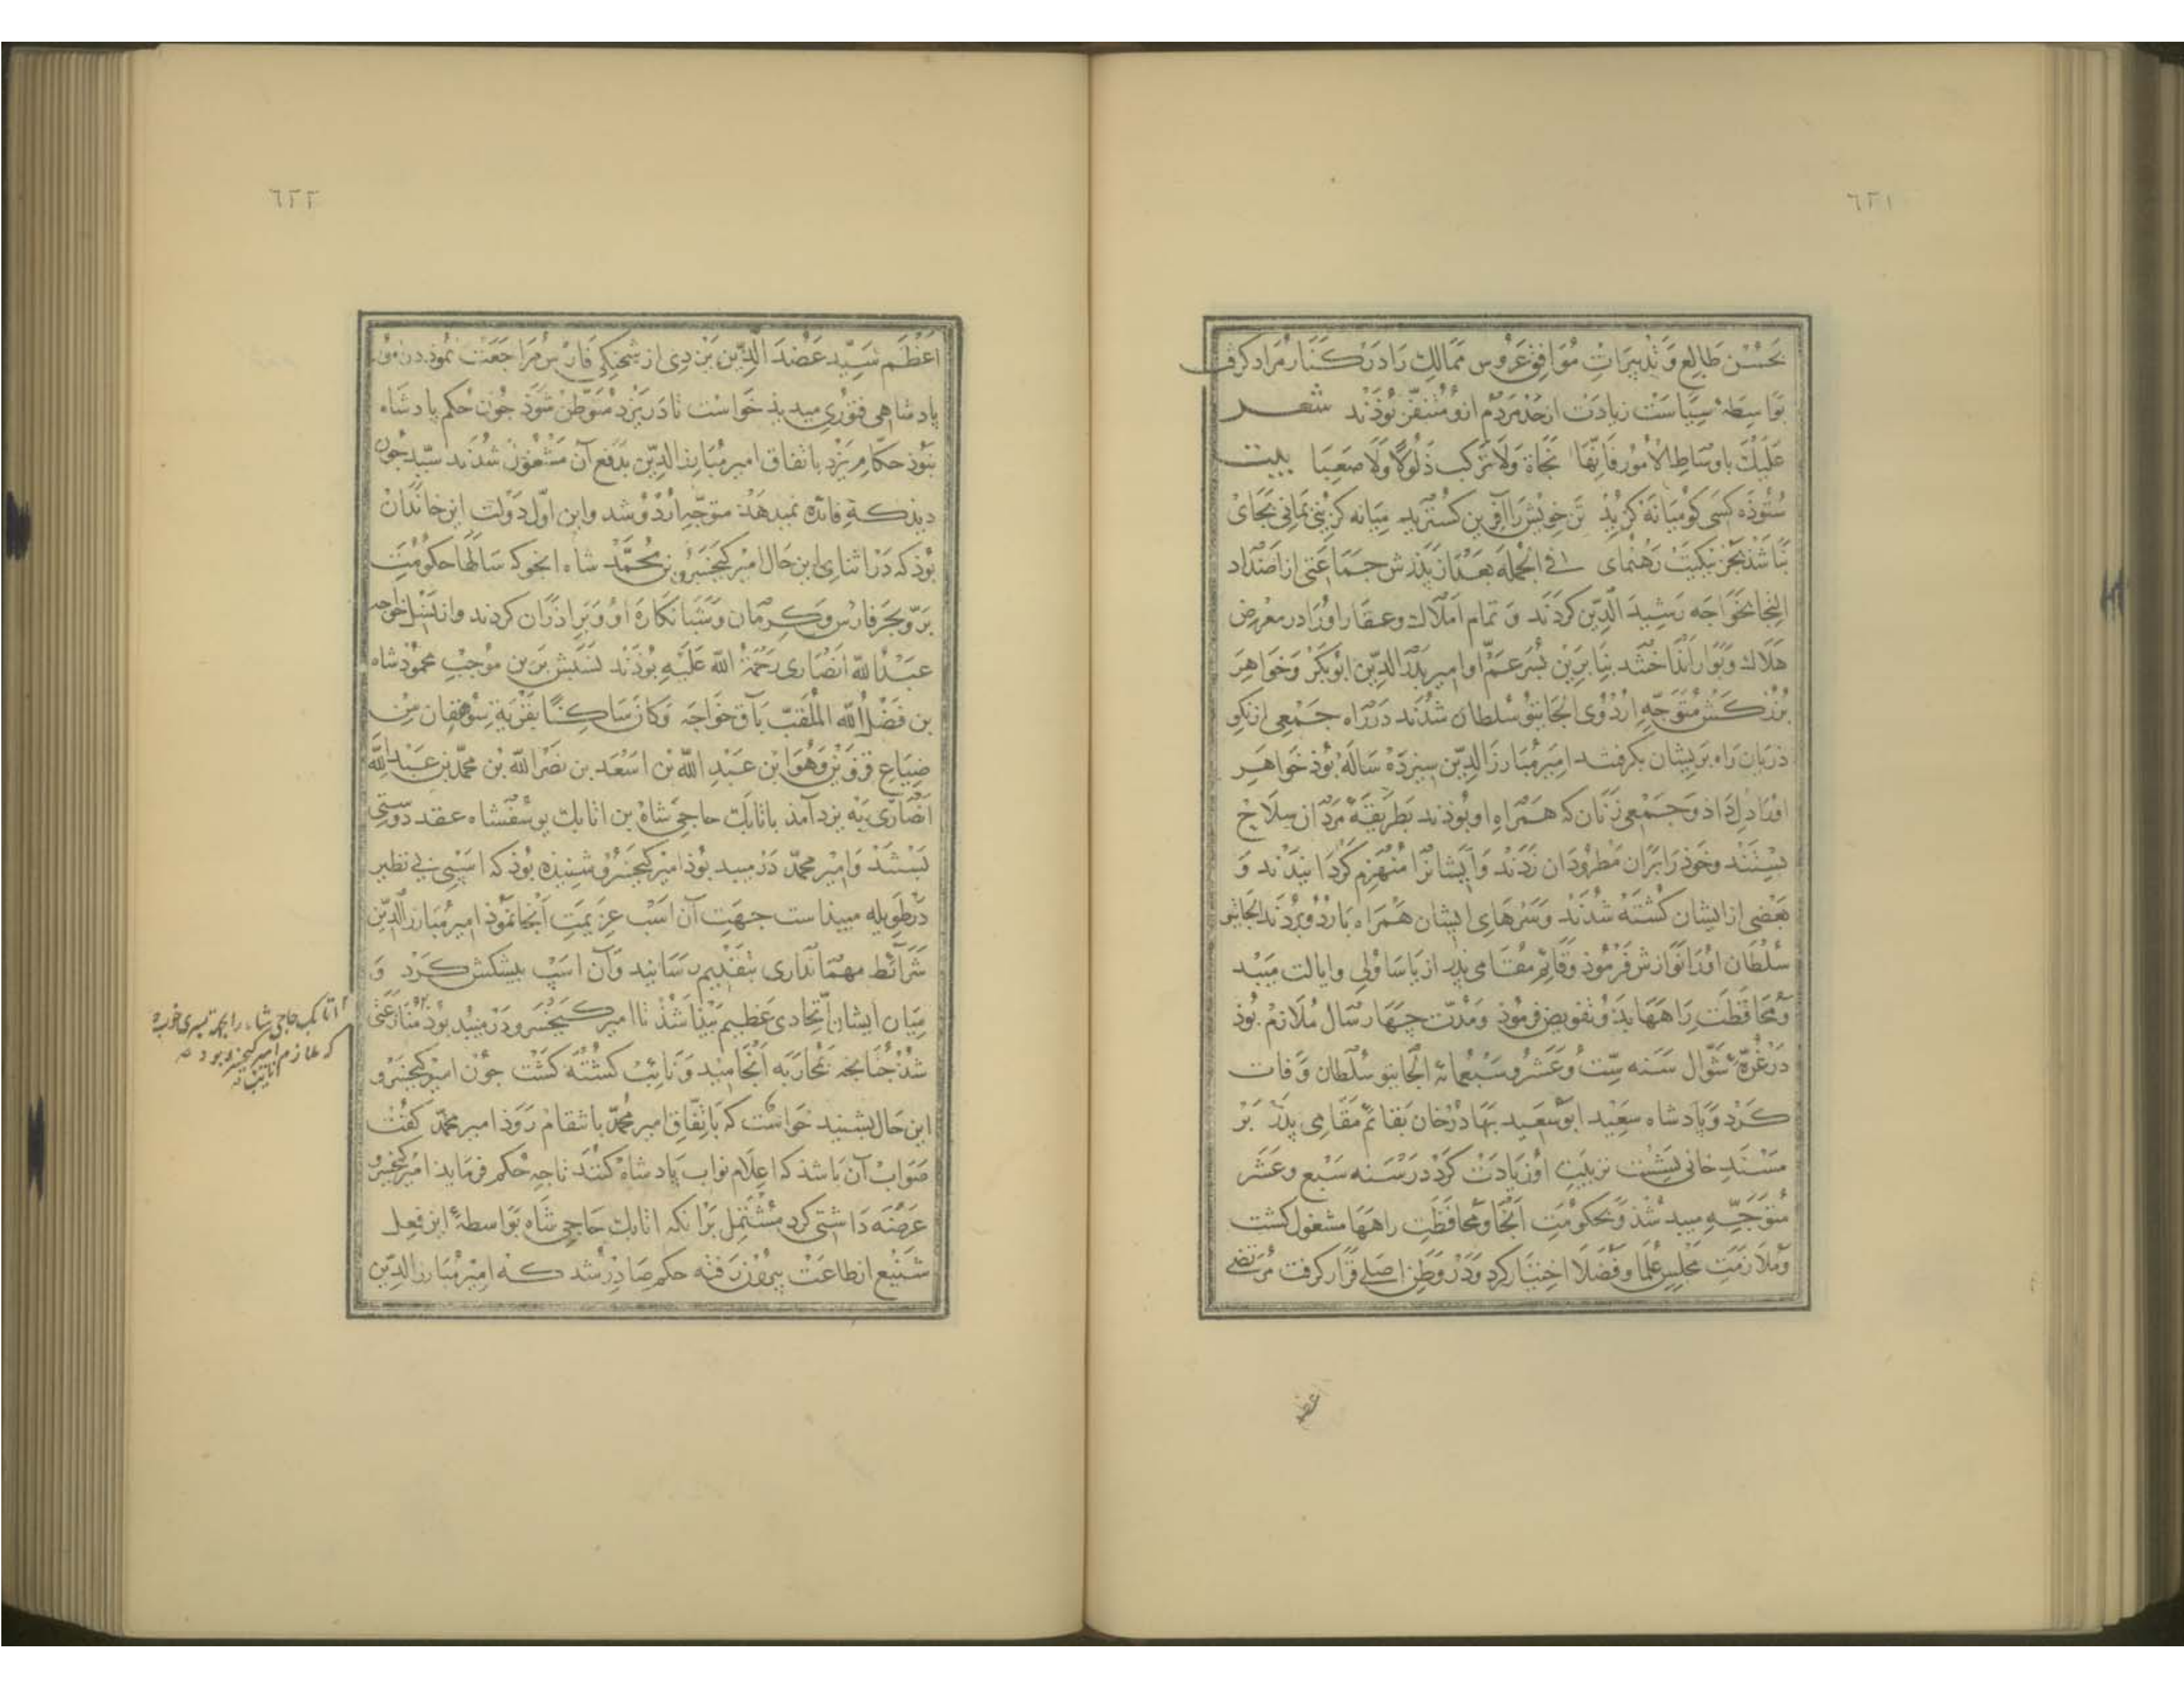 ٦٢١
بحُسْن طَالِع وَ تدبیرَاتِ مُوَافِق عَرُوس مَمَالِک رَا دَر کَنَار مُرَاد کرفت
بوَاسِطهٔ سِیَاسَت زیادَت از حَدّ مَردُم ازو مُتنفّر بُوذَند شعر
عَلَیْکَ باوسَاطِ الْاُمُورِ فَاِنّهَا نَجَاةٌ وَلَا تَرْکَب ذَلُولًا وَلَا صَعبَا بیت
سُتُوذَه کَسی کو مِیَانَه کزید تن خویش رَا آفرین کسترید میَانه کزینی بمَانی بجَای
نبَاشَذ بجز نیکیَت رَهنمای فی الجمله بَعد از پَدَرش جَمَاعَتی از اَضدَاد
التجا بخَوَاجَه رَشیدَ الدّین کردَند وَ تمام اَملَاک وعقار اورَا در معرض
هَلَاک وَ بَوَار اَندَاختند بنَا برین پسَر عَمّ او امیر بَدرَ الدّین ابُوبَکر وَ خوَاهَر
بُزُرکش مُتوَجّه اُردُوی الجَایتو سُلطان شدُند دَر رَاه جَمعی از نکو
ذریان رَاه بَریشان بکرفتند امیر مُبَارزَ الدّین سیزدَه سَالَه بُوذ خوَاهر
اورَا دِل دَاذ وَ جَمعی زنَان که همرَاهِ او بُوذند بَطریقهٔ مَردَان سِلَاح
بَستند وخوذ رَا برَان مَطرُودَان زَدَند وَ ایشانرَا مُنهَزم کردَانیدَند وَ
بَعضی از ایشان کشته شُدَند وَ سَرهَای ایشان همرَاه باردُو بردَند الجایتو
سُلطَان اورَا نوَازش فَرمُوذ وَ قائِم مقَامی پدر از یَاسَاولی وایالت میبد
وَمحَافظَتِ رَاهَهَا بدُو تفویض فرمُوذ وَمُدّت جهَار سَال مُلَازم بُوذ
دَر غُرّهٔ شوّال سَنه سِتّ وَعَشر وَسَبعمائه الجایتو سُلطان وَفات
کَرد وَپادشاه سعید ابوسَعید بهَادُر خان بقائم مَقَامی پدَر بَر
مَسنَد خانی بنشست تربیتِ او زیَادَت کرد در سَنه سَبع وعَشر
متوَجّهِ میبد شُذ وَبحکومَتِ آنجا وَمحَافظَتِ راهَهَا مشغول کشت
وَملَازمَتِ مَجلِس عُلمَا وَ فضَلَا اختیَار کرد وَدَر وَطن اصلی قرَار کرفت مُرتضی
عضد
٦٢٢
اَعظَم سَیّد عَضُدَ الدّین یَزدی از شحنکی فَارس مُرَاجَعَت نمُوذ
پادشاهی فتوری میدید خوَاست تا دَر یَزد متوَطّن شوَذ جُون حکم پادشاه
نبُوذ حکّام یَزد باتفاق امیر مُبَارز الدّین بدَفع آن مَشغول شدُند سَیّد جُون
دیذ کهِ فائده نمیدهَد متوَجّه اُردُو شد واین اوّل دَولت این خاندَان
بُوذ که دَر اثنای این حَال امیر کیخسرو بن محمّد شاه اینجو که سَالهَا حکومَتِ
بَرّ و بَحر فارس وَ کرمَان وَشبانکَارَه او وَ بَرَادَرَان کردند واز نسل خواجه
عبَدُ اللّه انصَاری رَحمَة اللّه عَلَیهِ بُوذند نسَبش برین مُوجب محمُود شاه
بن فضَل اللّه المُلَقّب بآق خواجه وَکانَ سَاکنًا بقریة سوهقان مِن
ضیَاع قزوین وَهُوَا بن عَبدِ اللّه بن اسعَد بن نصر اللّه بن محمّد بن عبَد اللّه
انصَاری به یزد آمَد باتابک حاجی شَاه بن اتابک یوسُفشاه عقد دوستی
بَستند وَامیر محمّد دَر میبد بُوذ امیر کیخسرو شنیذه بُوذ که اسبی بی نظیر
دَر طویلهِ میبذاست جهَتِ آن اسب عزیمَتِ آنجا نموذ امیر مُبَارز الدّین
شرَائط مهمَانداری بتقدیم رَسَانید وَآن اسب پیشکش کَرد وَ
میَان ایشان اتّحادی عَظیم پَیذَا شذ تا امیر کیخسرو در میبد بُوذ منَازعَتی
أتابک حاجی شاه را بجهت پسری خوب
که ملازم امیر کیخسرو بود
شُذ جُنانجه بمحَاربَه اَنجامید وَ نائب کشته کَشت جون امیر کیخسرو
این حَال بشنید خواست که باتّفاق امیر محمّد بانتقام رَوَذ امیر محمّد کفت
صَوَاب آن باشذ که اعلَام نواب پادشاه کنند تاجه حکم فرمَاید امیر کیخسرو
عَرضه دَاشتی کرد مُشتمل برَانکه اتابک حَاجی شاه بوَاسطهٔ این فعل
شنیع از طاعَت بیرُون رَفته حکم صَادر شد که امیر مُبَارز الدّین